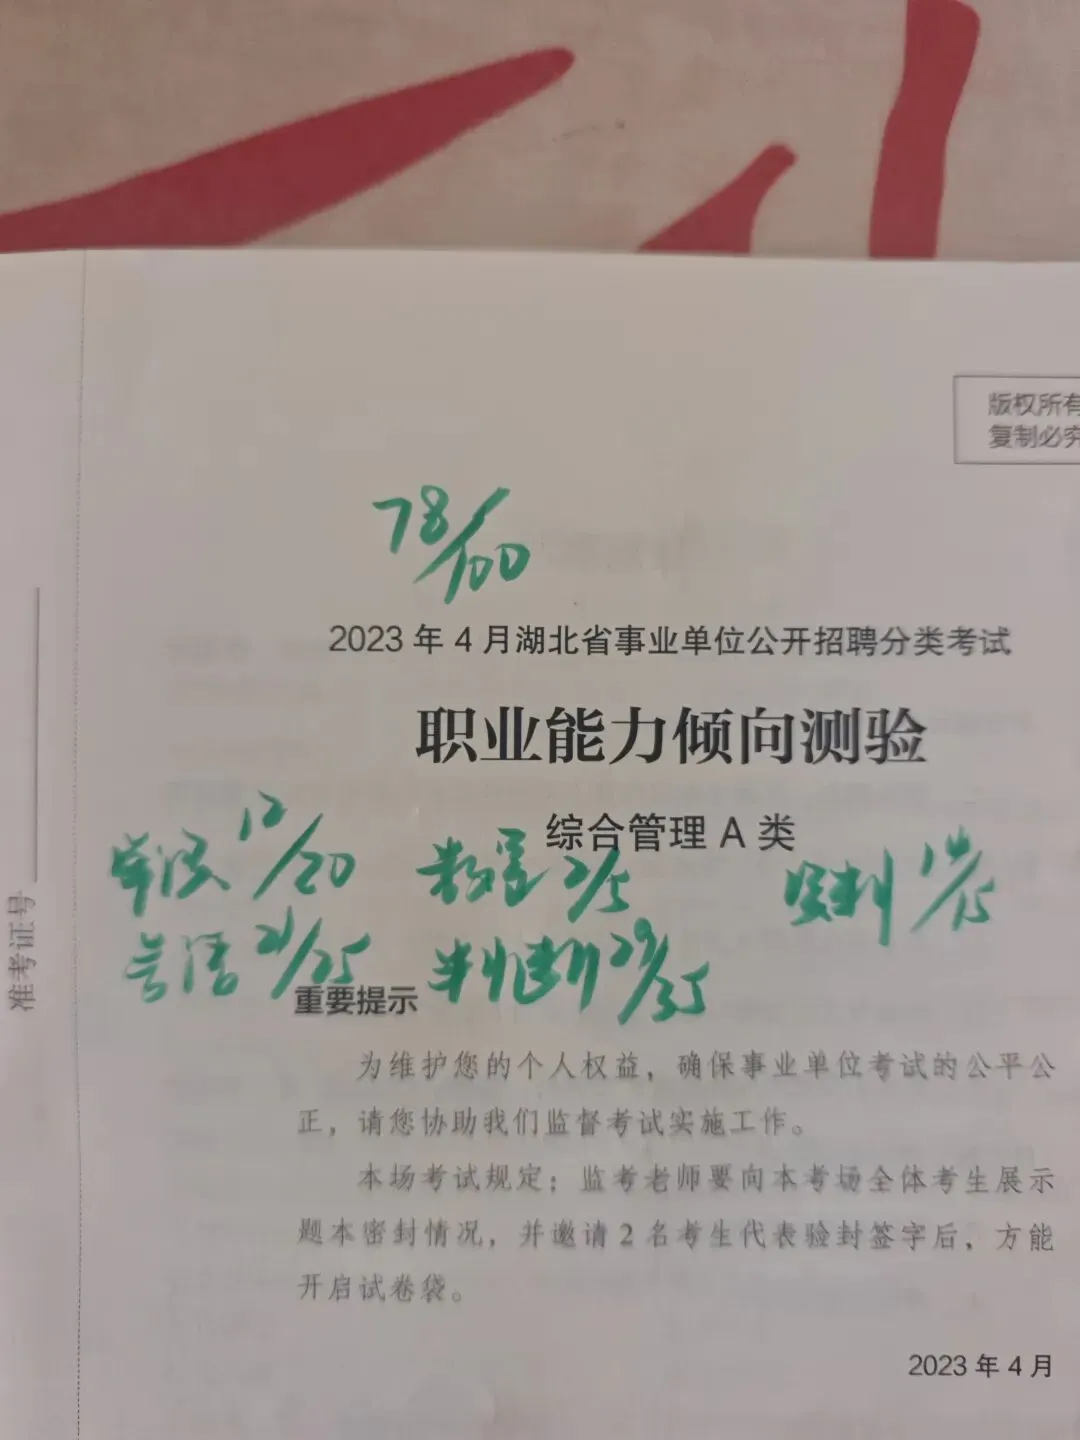 版权所有
复制必究
78/100
2023 年 4 月湖北省事业单位公开招聘分类考试
职业能力倾向测验
综合管理 A 类
常识 12/20 数量 2/5 资料 14/15
言语 21/25 判断 29/35
准考证号
重要提示
为维护您的个人权益，确保事业单位考试的公平公
正，请您协助我们监督考试实施工作。
本场考试规定：监考老师要向本考场全体考生展示
题本密封情况，并邀请 2 名考生代表验封签字后，方能
开启试卷袋。
2023 年 4 月